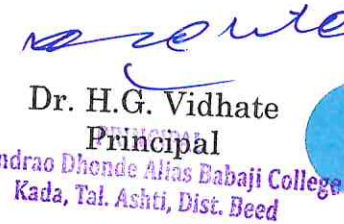 Dr. H.G. Vidhate
Principal
PRINCIPAL
ndrao Dhonde Alias Babaji College
Kada, Tal. Ashti, Dist. Beed